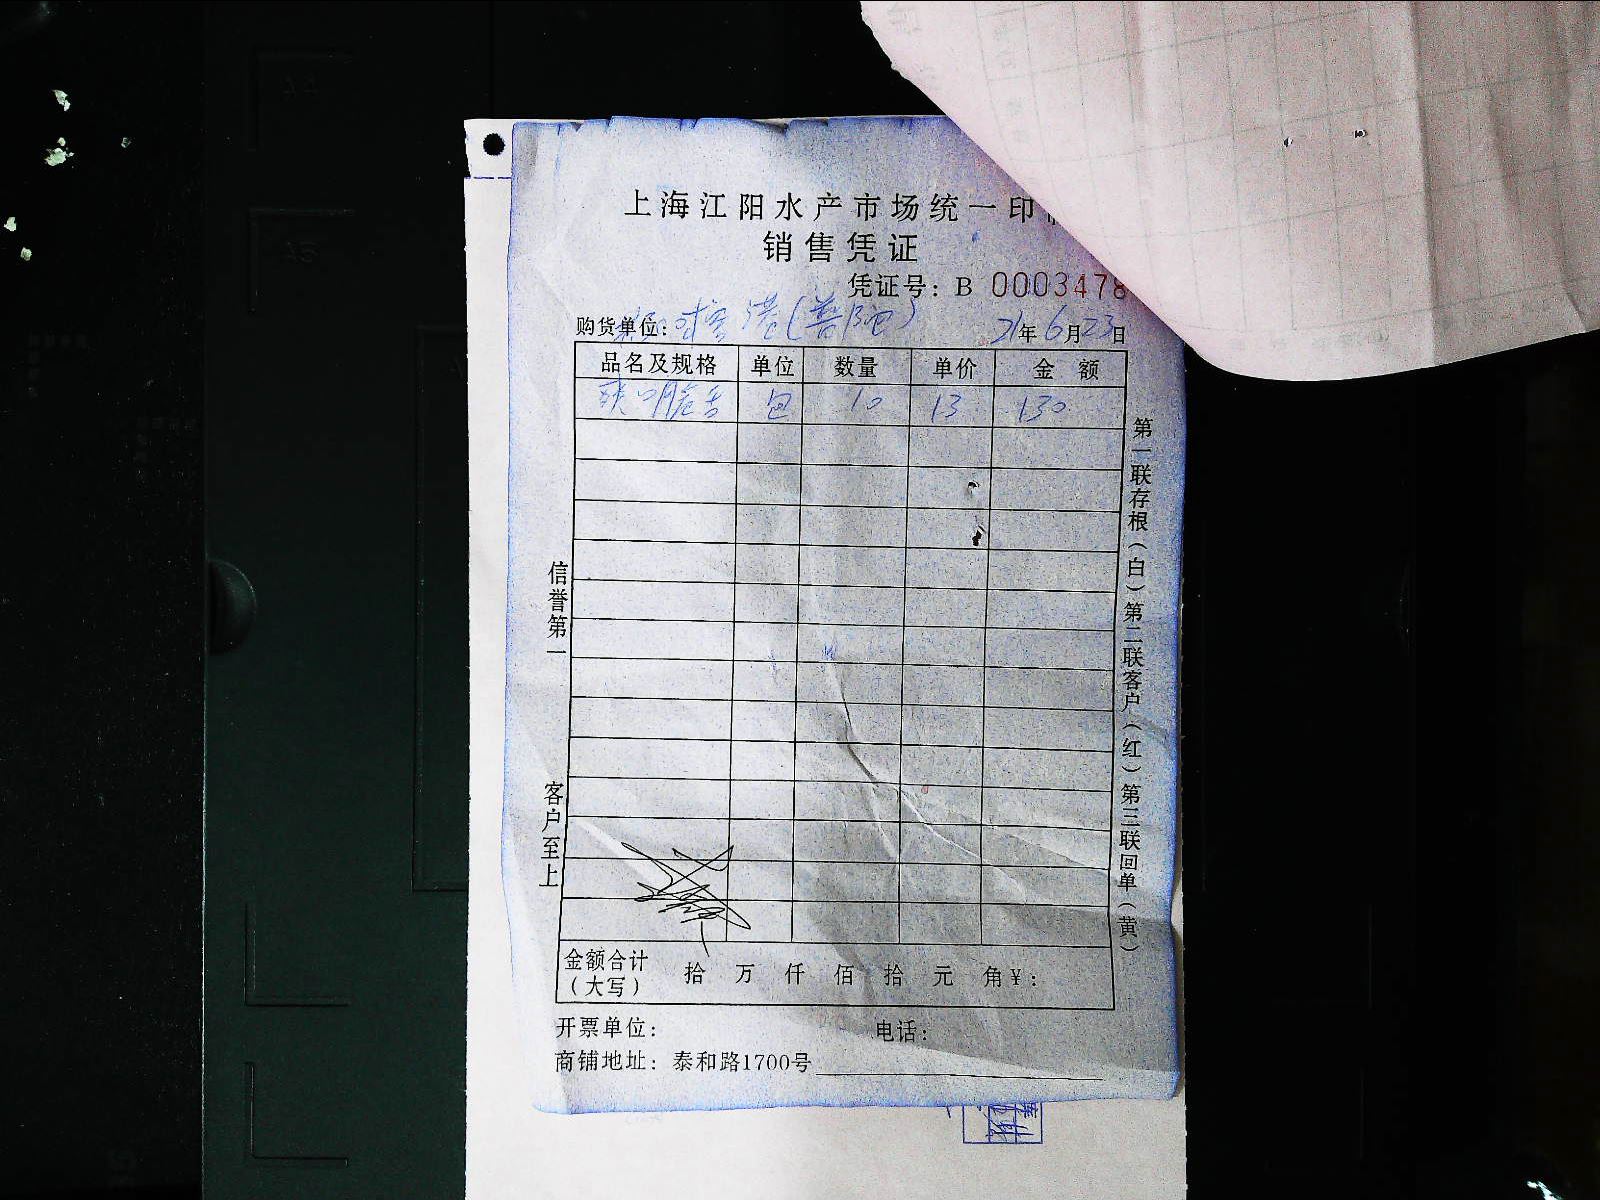 上海江阳水产市场统一印
销售凭证
凭证号：B 0003478
购货单位： 港(普陀) 21年6月23日
品名及规格 单位 数量 单价 金额
包 10 13 130
信誉第一
客户至上
第一联存根（白）第二联客户（红）第三联回单（黄）
金额合计（大写） 拾 万 仟 佰 拾 元 角 ¥：
开票单位： 电话：
商铺地址：泰和路1700号